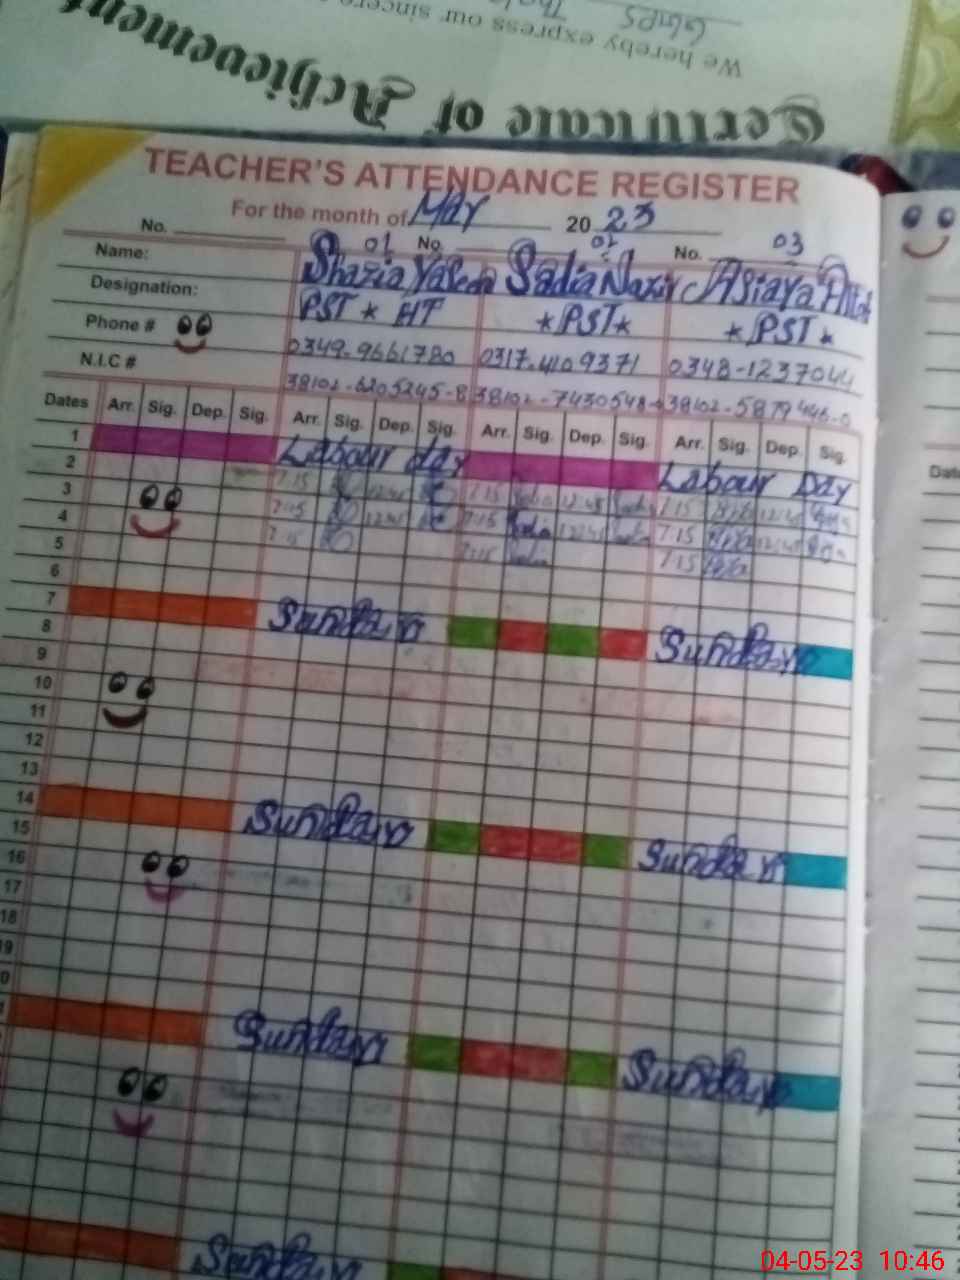 Certificate of Achievement
We hereby express our sincere
GGMPS
TEACHER'S ATTENDANCE REGISTER
For the month of May 2023
No. 01 No. 02 No. 03
Name: Shazia Yaseen Sadia Nazir Asiaya
Designation: PST * HT *PST* *PST*
Phone # 0349-9661780 0317-4109371 0348-1237044
N.I.C # 38102-6205245-8 38102-7430548- 38102-5879446-0
Dates Arr. Sig. Dep. Sig. Arr. Sig. Dep. Sig. Arr. Sig. Dep. Sig. Arr. Sig. Dep. Sig.
1 Labour day Labour Day
2 7:15 12:45 7:15 Sadia 12:45 Sadia 7:15 12:45
3 7:15 12:45 7:15 Sadia 12:45 Sadia 7:15 12:45
4 7:15 7:15 Sadia 7:15
5
6
7 Sunday Sunday
8
9
10
11
12
13
14 Sunday Sunday
15
16
17
18
19
Sunday Sunday
Sunday
Date
04-05-23 10:46